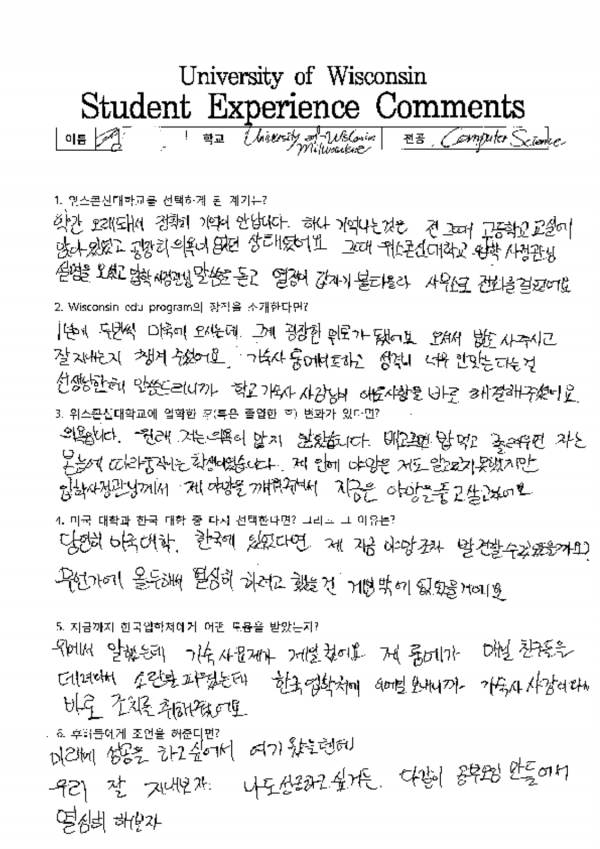 University of Wisconsin
Student Experience Comments
이름 학교 University of Wisconsin Milwaukee 전공 Computer Science
1. 위스콘신대학교를 선택하게 된 계기는?
약간 오래돼서 정확히 기억이 안납니다. 하나 기억나는것은 전 그때 고등학교 교실에
앉아 있었고 굉장히 의욕이 없던 상태였어요 그때 위스콘신대학교 입학 사정관님
설명을 오셨고 입학사정관님 말씀을 듣고 열정이 갑자기 불타올라 사무소로 전화를 걸었어요
2. Wisconsin edu program의 장점을 소개한다면?
1년에 두번씩 미국에 오시는데. 그게 굉장한 위로가 됐어요 오셔서 밥도 사주시고
잘 지내는지 챙겨 주셨어요. 기숙사 룸메이트하고 성격이 너무 안맞는다는걸
선생님한테 말씀드리니까 학교 기숙사 사감님이 애로사항을 바로 해결해주셨어요.
3. 위스콘신대학교에 입학한 후(혹은 졸업한 후) 변화가 있다면?
의욕입니다. 원래 저는 의욕이 많지 않았습니다. 배고프면 밥먹고 졸려우면 자는
본능에 따라 움직이는 학생이었습니다. 제 안에 야망은 저도 알고있지 못했지만
입학사정관님께서 제 야망을 깨워주셔서 지금은 야망을 품고 살고있어요
4. 미국 대학과 한국 대학 중 다시 선택한다면? 그리고 그 이유는?
당연히 미국대학. 한국에 있었다면 제 지금 야망조차 발견할수 있었을까요?
무언가에 몰두해서 열심히 하려고 했는 건 게임 밖에 없었을거에요
5. 지금까지 한국입학처에게 어떤 도움을 받았는지?
위에서 말했는데 기숙사 문제가 제일 컸어요 제 룸메가 매일 친구들을
데려와서 소란을 피웠는데 한국입학처에 이메일 보내니까 기숙사 사감이
바로 조치를 취해줬어요
6. 후배들에게 조언을 해준다면?
미래에 성공을 하고싶어서 여기 왔을텐데
우리 잘 지내보자. 나도 성공하고 싶거든. 다같이 공부모임 만들어서
열심히 해보자